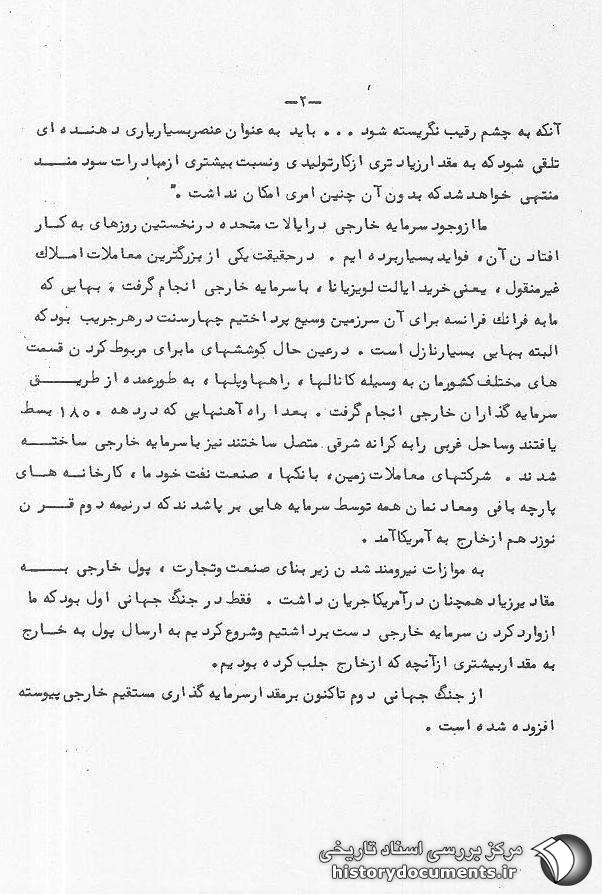 —۲—
آنکه به چشم رقیب نگریسته شود ... باید به عنوان عنصر بسیار یاری دهنده ای
تلقی شود که به مقدار زیاد تری از کار تولیدی ونسبت بیشتری از مبادرات سود منـد
منتهی خواهد شد که بدون آن چنین امری امکان نداشت ."
ما از وجود سرمایه خارجی در ایالات متحده در نخستین روزهای به کـار
افتادن آن، فواید بسیار برده ایم . در حقیقت یکی از بزرگترین معاملات امـلاک
غیرمنقول ، یعنی خرید ایالت لویزیانا ، با سرمایه خارجی انجام گرفت . بهایی که
ما به فرانک فرانسه برای آن سرزمین وسیع پرداختیم چهار سنت در هر جریب بود که
البته بهایی بسیار نازل است . در عین حال کوششهای ما برای مربوط کردن قسمت
های مختلف کشورمان به وسیله کانالها ، راهها و پلها ، به طور عمده از طریـــق
سرمایه گذاران خارجی انجام گرفت . بعدا راه آهنهایی که در دهه ۱۸۵۰ بسط
یافتند وساحل غربی را به کرانه شرقی متصل ساختند نیز با سرمایه خارجی ساختـه
شدند . شرکتهای معاملات زمین، بانکها ، صنعت نفت خود ما ، کارخانـه هـای
پارچه بافی ومعادنمان همه توسط سرمایه هایی بر پا شدند که در نیمه دوم قـرن
نوزدهم از خارج به آمریکا آمد .
به موازات نیرومند شدن زیر بنای صنعت وتجارت ، پول خارجی بـــه
مقادیر زیاد همچنان در آمریکا جریان داشت . فقط در جنگ جهانی اول بود که ما
از وارد کردن سرمایه خارجی دست برداشتیم وشروع کردیم به ارسال پول به خـارج
به مقدار بیشتری از آنچه که از خارج جلب کرده بودیم.
از جنگ جهانی دوم تاکنون بر مقدار سرمایه گذاری مستقیم خارجی پیوسته
افزوده شده است .
مرکز بررسی اسناد تاریخی
historydocuments.ir